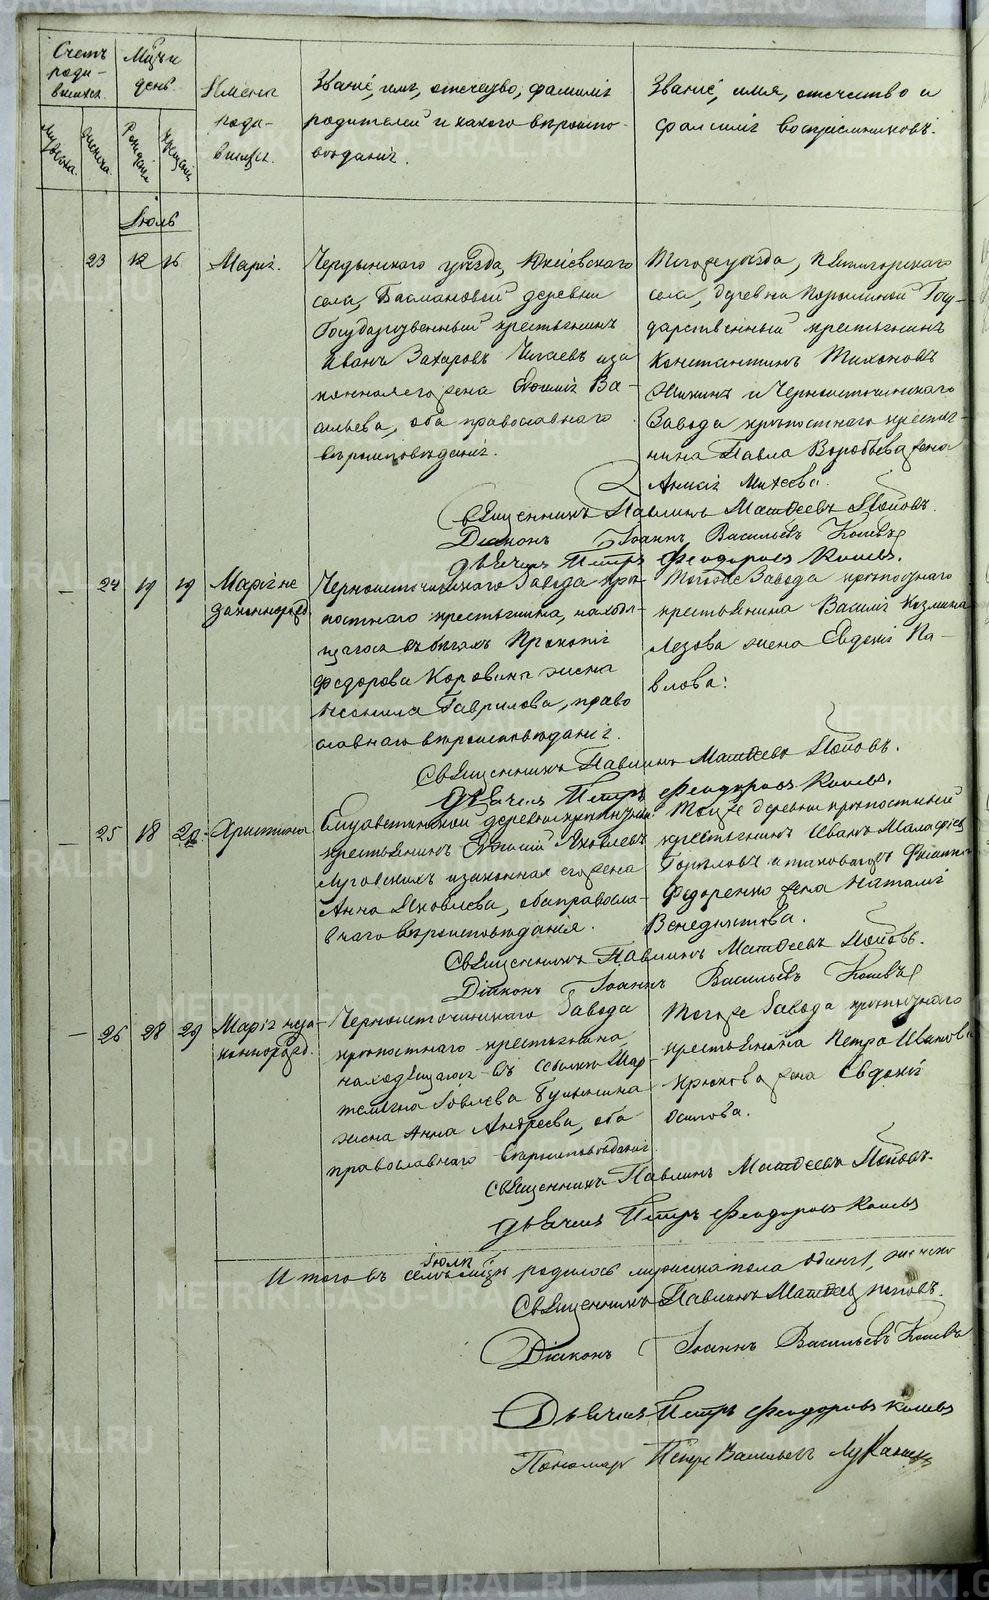 Счетъ роди-вшихся.
Мѣсяцъ и день.
Имена роди-вшихся.
Званіе, имя, отечество, фамилія
родителей и какого вѣроиспо-
вѣданія.
Званіе, имя, отечество и
фамилія воспріемниковъ.
Мужеска.
Женска.
Рожденія
Крещенія
Іюль
23 12 16 Марія.
Чердынскаго уѣзда, Юксѣевскаго
села, Басмановой деревни
Государственный крестьянинъ
Иванъ Захаровъ Чигаевъ и за
конная его жена Евфимія Ва-
сильева, оба православнаго
вѣроисповѣданія.
Тогоже уѣзда, Пятигорскаго
села, деревни Государственный крестьянинъ
Константинъ Тихоновъ
и Черноисточинскаго
Завода крѣпостнаго крестья-
нина Павла Воробьева жена
Анисія Михеева.
Священникъ Павлинъ Матѳеевъ Поповъ.
Діаконъ Іоаннъ Васильевъ
Дьячекъ Петръ Феодоровъ
24 19 19 Марія не
законнорожд.
Черноисточинскаго Завода крѣ-
постнаго крестьянина, находя-
щагося въ бѣгахъ Прокопія
Федорова Коровина жена
Неонила Гаврилова, право
славнаго вѣроисповѣданія.
Тогоже Завода крѣпостнаго
крестьянина Василія Козмина
Лезова жена Евдокія Па-
влова.
Священникъ Павлинъ Матѳеевъ Поповъ.
Дьячекъ Петръ Феодоровъ
25 18 20. Христина
Елизаветинской деревни крѣпостный
крестьянинъ Евфимій Яковлевъ
Луговскихъ и законная его жена
Анна Яковлева, оба правосла-
внаго вѣроисповѣданія.
Тоже деревни крѣпостный
крестьянинъ Иванъ
Гордѣевъ и таковагожъ Филиппа
Федоренко жена Наталія
Венедиктова.
Священникъ Павлинъ Матѳеевъ Поповъ.
Діаконъ Іоаннъ Васильевъ
26 28 29 Марія неза-
коннорожд.
Черноисточинскаго Завода
крѣпостнаго крестьянина,
находящагося въ ссылкѣ Мар-
темьяна Іовлева
жена Анна Андреева, оба
православнаго вѣроисповѣданія
Тогоже Завода крѣпостнаго
крестьянина Петра Иванова
Крюкова жена Евдокія
Осипова.
Священникъ Павлинъ Матѳеевъ Поповъ.
Дьячекъ Петръ Феодоровъ
Итого въ Іюлѣ мѣсяцѣ родилось мужеска пола одинъ, женска
Священникъ Павлинъ Матѳеевъ Поповъ.
Діаконъ Іоаннъ Васильевъ
Дьячекъ Петръ Феодоровъ
Пономарь Петръ Васильевъ Луканинъ
METRIKI.GASO-URAL.RU